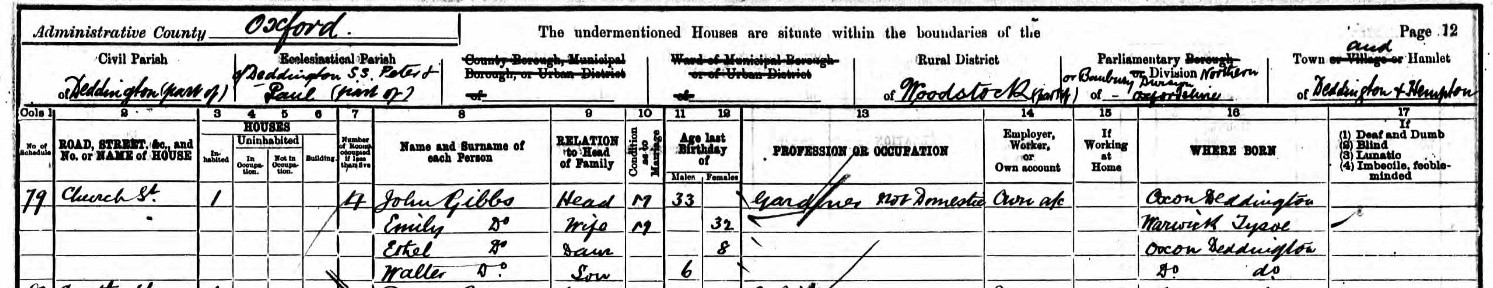 Administrative County Oxford. The undermentioned Houses are situate within the boundaries of the Page 12
Civil Parish Ecclesiastical Parish County Borough, Municipal Borough, or Urban District Ward of Municipal Borough or of Urban District Rural District Parliamentary Borough or Division Town or Village or Hamlet and
of Deddington (part of) of Deddington SS. Peter & Paul (part of) of of of Woodstock (part of) or Banbury Division Northern Oxfordshire of Deddington & Hempton
Cols 1 2 3 4 5 6 7 8 9 10 11 12 13 14 15 16 17
No. of Schedule ROAD, STREET, &c., and No. or NAME of HOUSE HOUSES Inhabited Uninhabited In Occupation. Not in Occupation. Building. Number of Rooms occupied if less than five Name and Surname of each Person RELATION to Head of Family Condition as to Marriage Age last Birthday of Males Females PROFESSION OR OCCUPATION Employer, Worker, or Own account If Working at Home WHERE BORN If (1) Deaf and Dumb (2) Blind (3) Lunatic (4) Imbecile, feeble-minded
79 Church St. 1 4 John Gibbs Head M 33 Gardener not Domestic Own a/c Oxon Deddington
Emily Do Wife M 32 Warwick Tysoe
Ethel Do Daur 8 Oxon Deddington
Walter Do. Son 6 Do do